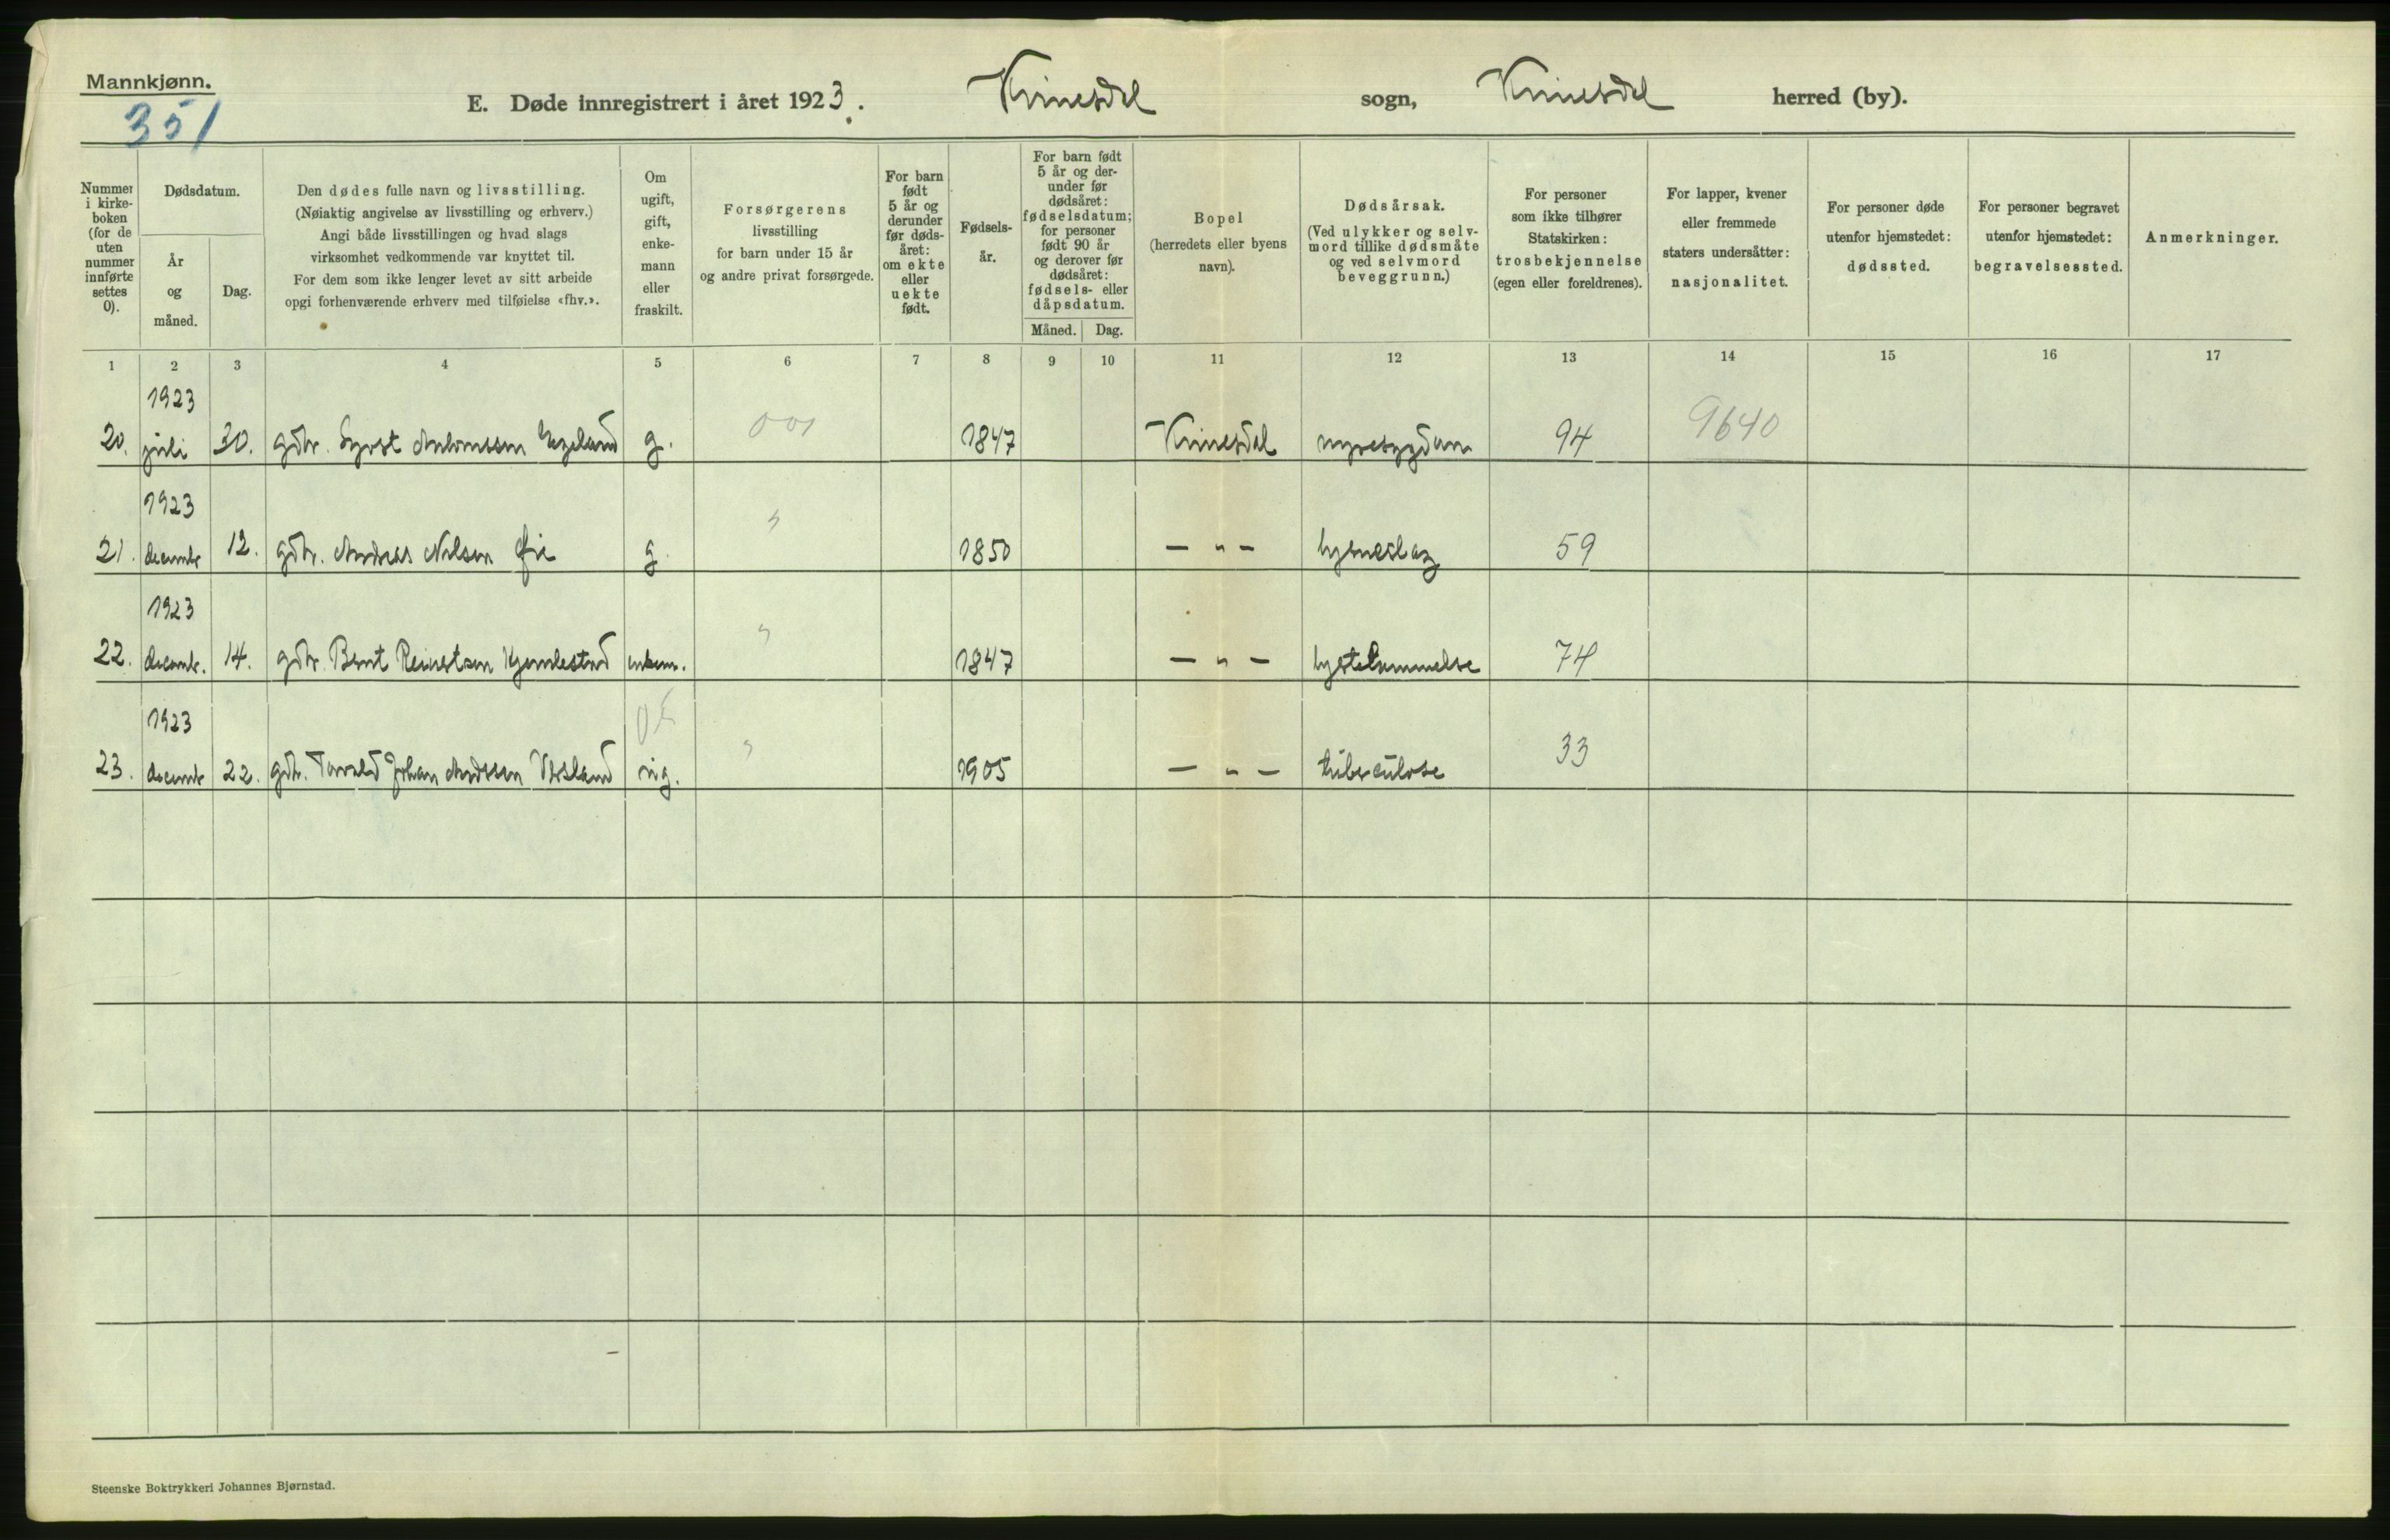 Mannkjønn.
351
E. Døde innregistrert i året 1923. Kvinesdal sogn, Kvinesdal herred (by).
Nummer
i kirke-
boken
(for de
uten
nummer
innførte
settes
0).
Dødsdatum.
År
og
måned.
Dag.
Den dødes fulle navn og livsstilling.
(Nøiaktig angivelse av livsstilling og erhverv.)
Angi både livsstillingen og hvad slags
virksomhet vedkommende var knyttet til.
For dem som ikke lenger levet av sitt arbeide
opgi forhenværende erhverv med tilføielse «fhv.».
Om
ugift,
gift,
enke-
mann
eller
fraskilt.
Forsørgerens
livsstilling
for barn under 15 år
og andre privat forsørgede.
For barn
født
5 år og
derunder
før døds-
året:
om ekte
eller
uekte
født.
Fødsels-
år.
For barn født
5 år og der-
under før
dødsåret:
fødselsdatum;
for personer
født 90 år
og derover før
dødsåret:
fødsels- eller
dåpsdatum.
Måned. Dag.
Bopel
(herredets eller byens
navn).
Dødsårsak.
(Ved ulykker og selv-
mord tillike dødsmåte
og ved selvmord
beveggrunn.)
For personer
som ikke tilhører
Statskirken:
trosbekjennelse
(egen eller foreldrenes).
For lapper, kvener
eller fremmede
staters undersåtter:
nasjonalitet.
For personer døde
utenfor hjemstedet:
dødssted.
For personer begravet
utenfor hjemstedet:
begravelsessted.
Anmerkninger.
1 2 3 4 5 6 7 8 9 10 11 12 13 14 15 16 17
1923
20. juli 30. gdbr. Egeland g. 001 1847 Kvinesdal nyresygdom 94 9640
1923
21. decembr 12. gdbr. Andreas Nilsen Øie g. " 1850 — " — hjerneslag 59
1923
22. decembr. 14. gdbr. Bernt Reinertsen enkem. " 1847 — " — hjertelammelse 74
1923
23. decembr 22. gdbr. Torvald Johan ug. " 1905 — " — tuberculose 33
Steenske Boktrykkeri Johannes Bjørnstad.